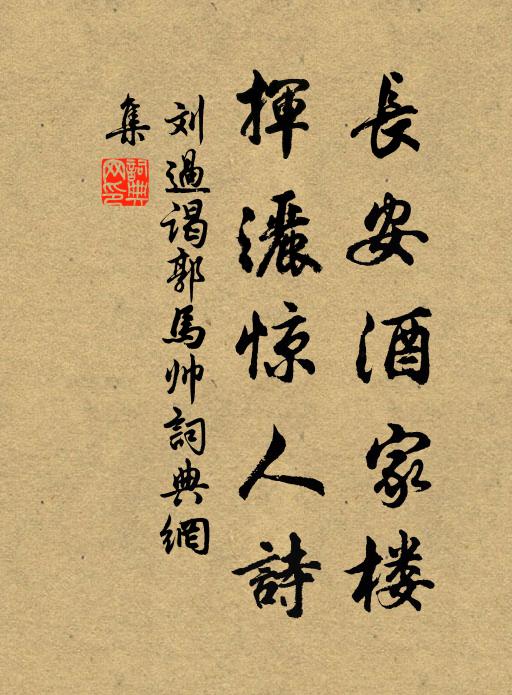 長安酒家楼
揮灑惊人詩
刘過谒郭馬帅詞典網
集
詞典网印